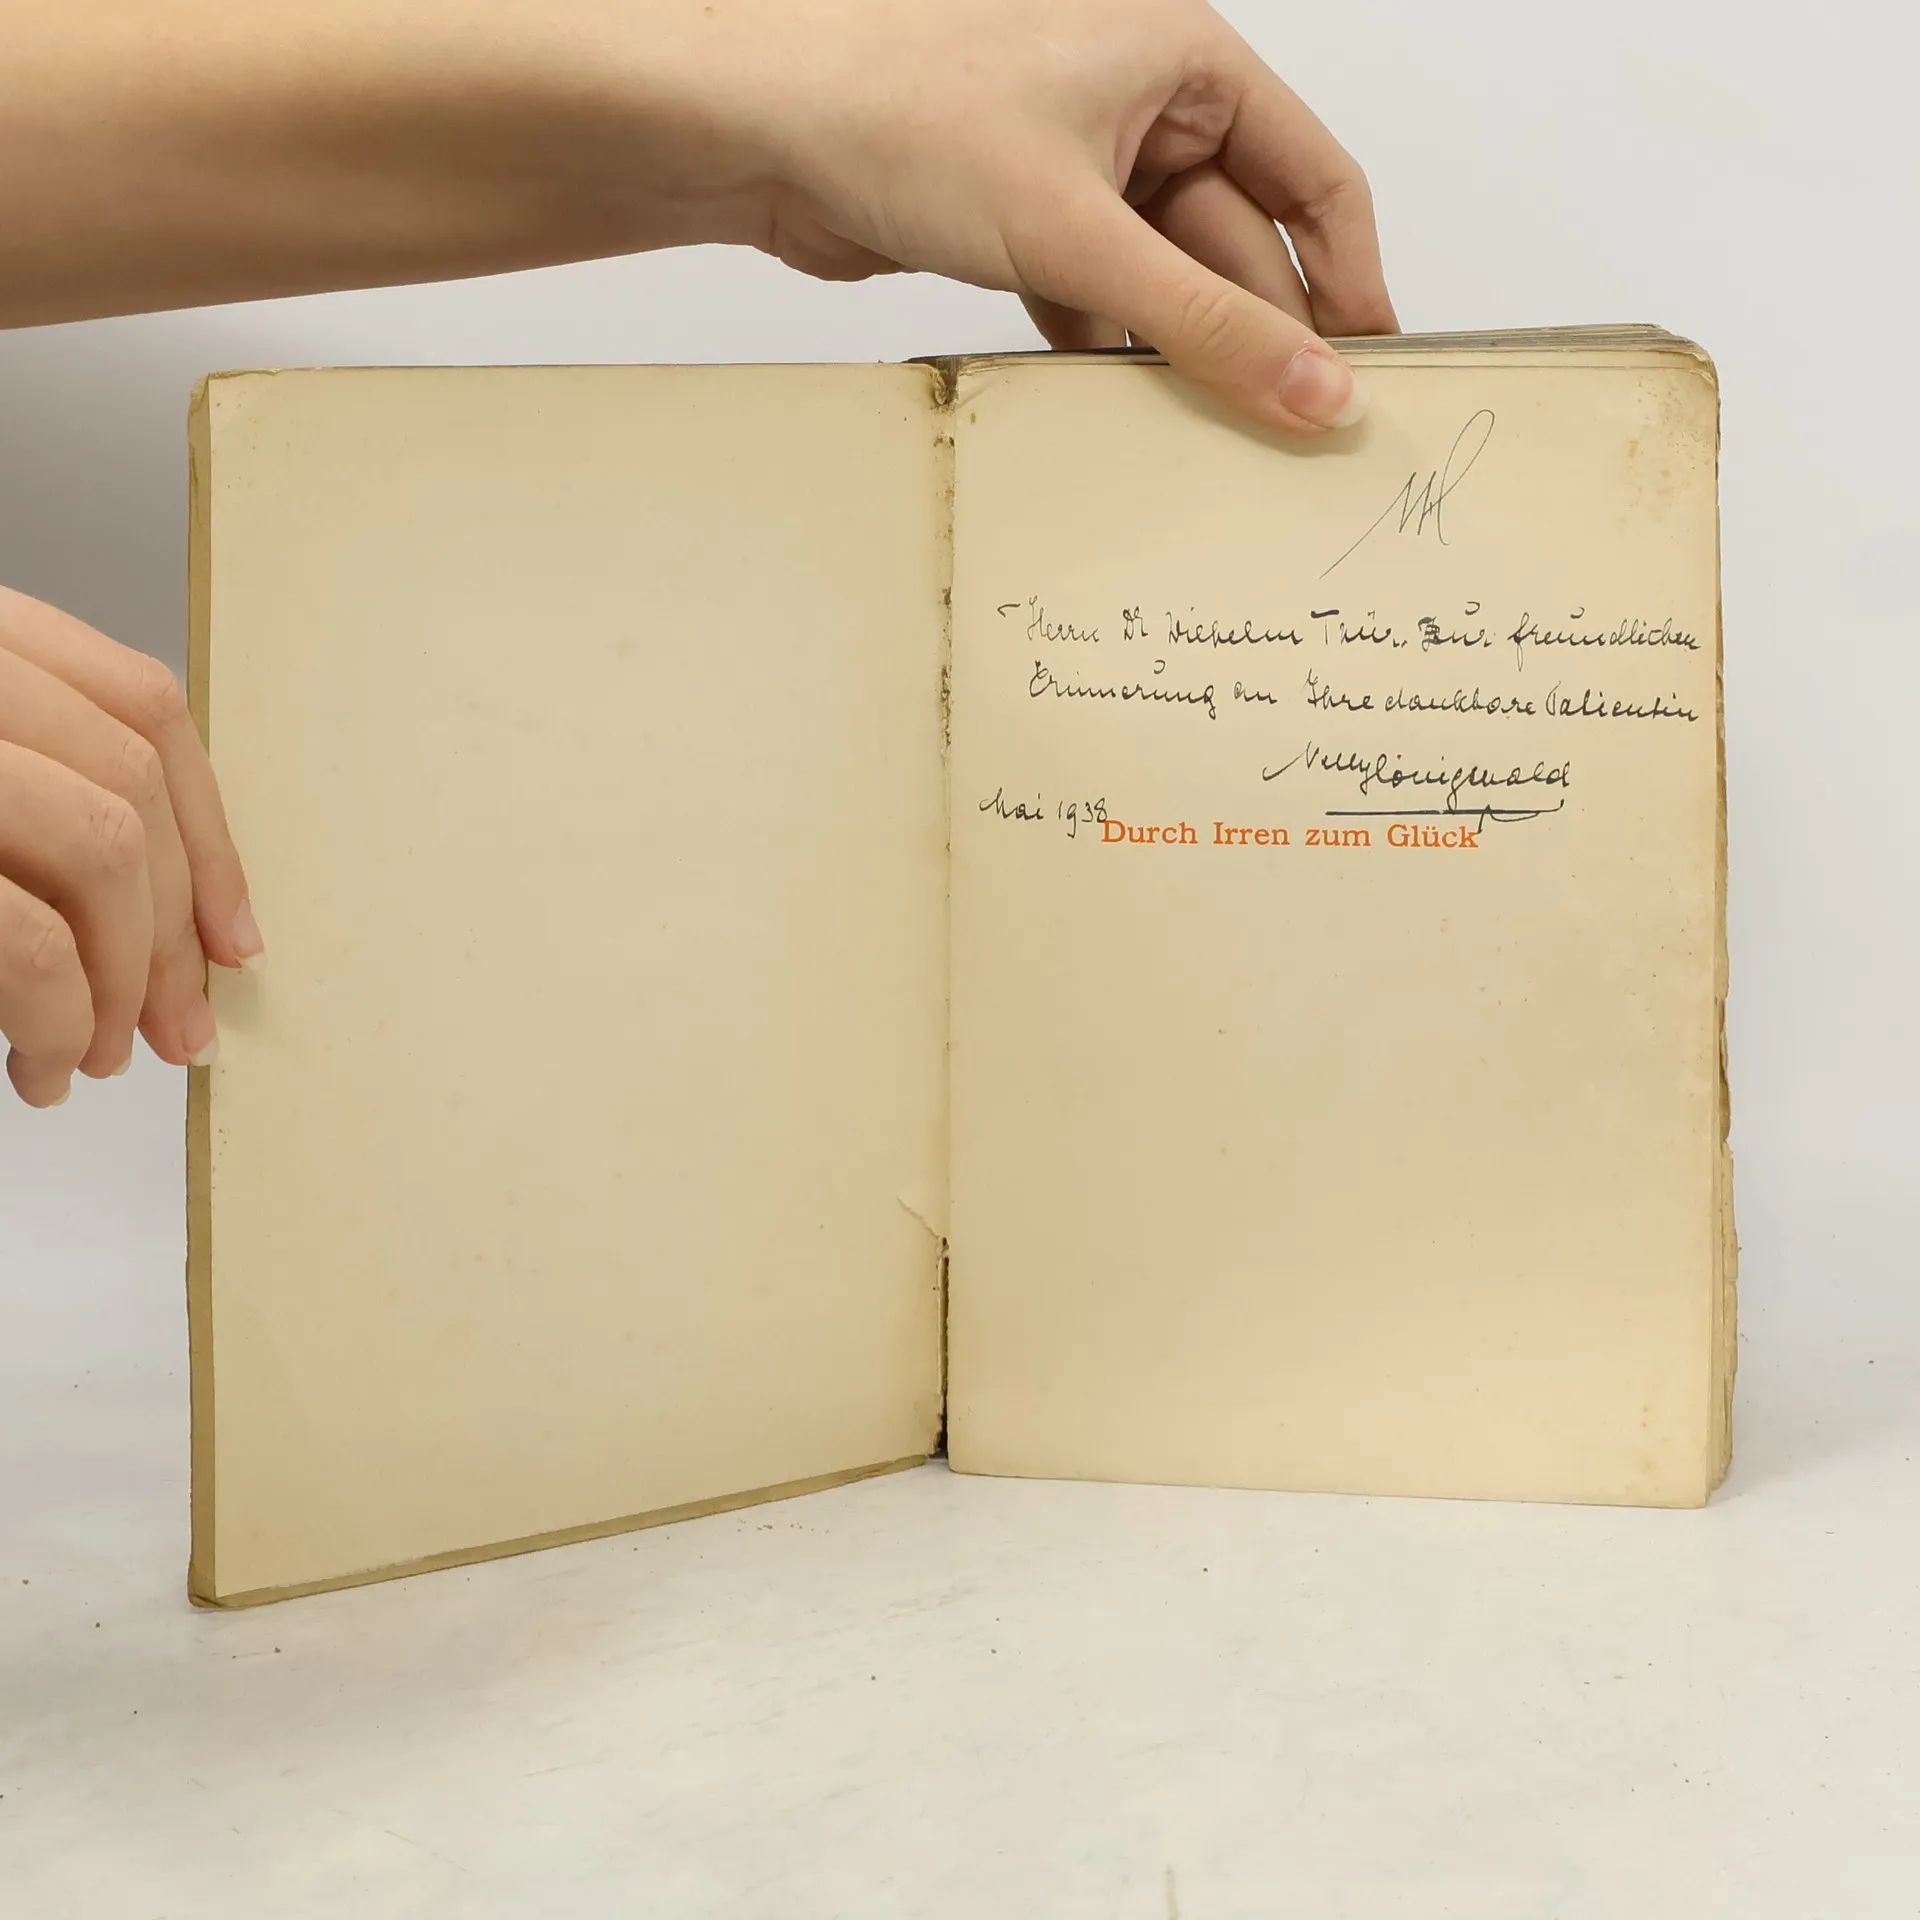 Herrn Dr Wilhelm Tür. Zur freundlichen
Erinnerung an Ihre dankbare Patientin
Nelly Königswald
Mai 1938
Durch Irren zum Glück